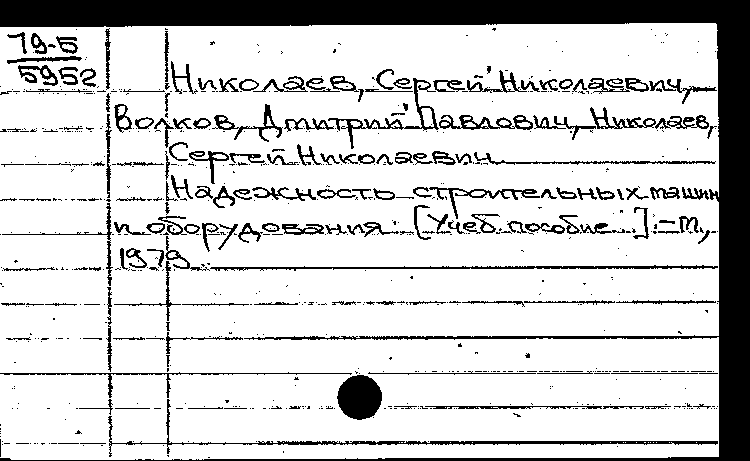 79-5
5952
Николаев, Сергей Николаевич,
Волков, Дмитрий Павлович, Николаев,
Сергей Николаевич.
Надежность строительных машин
и оборудования: [Учеб. пособие...]. - М,
1979.